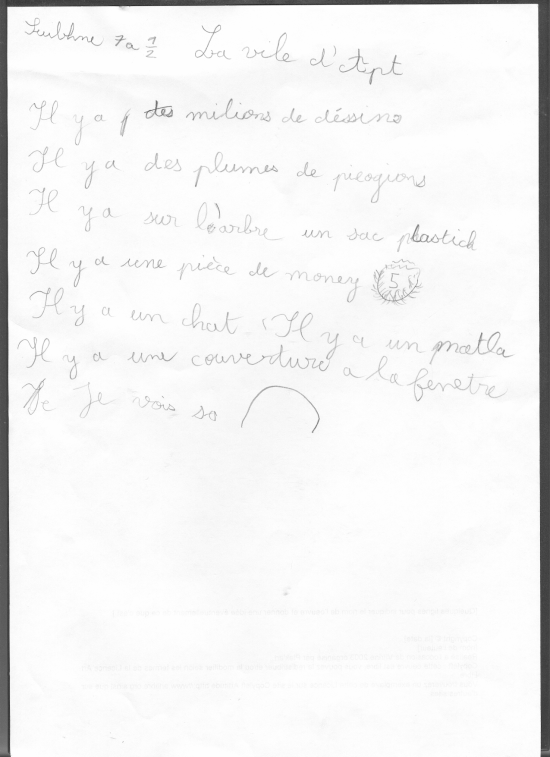 7a 1/2 La vile d'Apt
Il y a des milions de déssins
Il y a des plumes de piegions
Il y a sur l'arbre un sac plastick
Il y a une pièce de money 5
Il y a un chat. Il y a un matla
Il y a une couverture a la fenetre
Je vois so